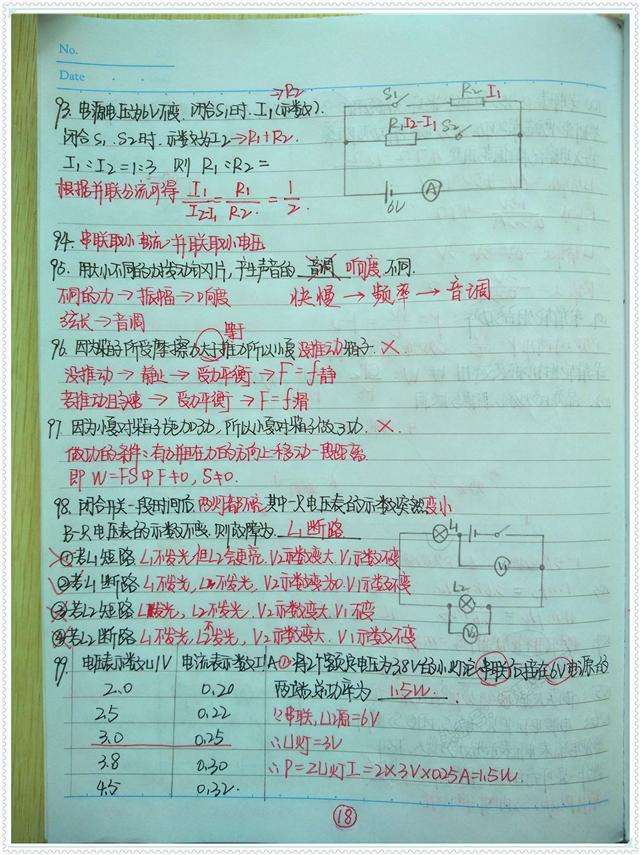 No.
Date
→R2
93. 电源电压为6V不变. 闭合S1时. I1(示数).
闭合S1. S2时. 示数为I2→R1+R2.
I1:I2=1:3 则 R1:R2=
根据并联分流可得 I1/I2-I1 = R1/R2 = 1/2.
S1 R2 I1
R1 I2-I1 S2
6V A
94. 串联取小电流 并联取小电压
95. 用大小不同的力拨动钢片, 产生声音的 音调 响度 不同.
不同的力→振幅→响度 快慢→频率→音调
弦长→音调
等于
96. 因为箱子所受摩擦力大于推力所以小夏没推动箱子. ×
没推动→静止→受力平衡→F=f静
若推动且匀速→受力平衡→F=f滑
97. 因为小夏对箱子施加了力, 所以小夏对箱子做了功. ×
做功的条件: 有力且在力的方向上移动一段距离.
即 W=FS中F≠0, S≠0.
98. 闭合开关一段时间后 两灯都不亮 其中一只电压表的示数突然变小
另一只电压表的示数不变. 则故障为 L1断路
L1 V1 L2 V2
①若L1短路. L1不发光, 但L2会更亮. V2示数变大. V1示数不变
②若L1断路 L1不发光, L2不发光. V2示数变为0. V1示数不变
③若L2短路 L1发光, L2不发光. V2示数变大. V1不变
④若L2断路 L1不发光. L2不发光, V2示数变大. V1示数不变
99. 电压表示数U/V 电流表示数I/A ①将2个额定电压为3.8V的小灯泡串联后接在6V电源的
2.0 0.20 两端. 总功率为 1.5W.
2.5 0.22 ∵串联, U源=6V
3.0 0.25 ∴U灯=3V
3.8 0.30 ∴P=2U灯I=2×3V×0.25A=1.5W.
4.5 0.32
18